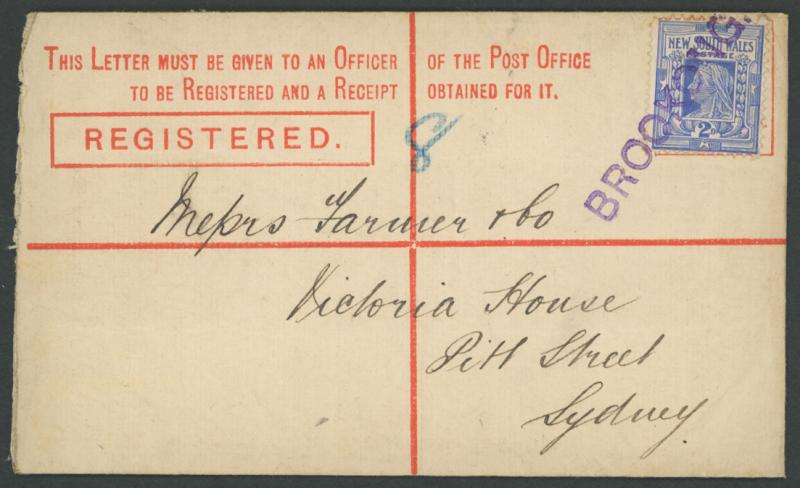 THIS LETTER MUST BE GIVEN TO AN OFFICER OF THE POST OFFICE
TO BE REGISTERED AND A RECEIPT OBTAINED FOR IT.
REGISTERED.
8
NEW SOUTH WALES
POSTAGE
2D
Messrs Farmer & Co
Victoria House
Pitt Street
Sydney